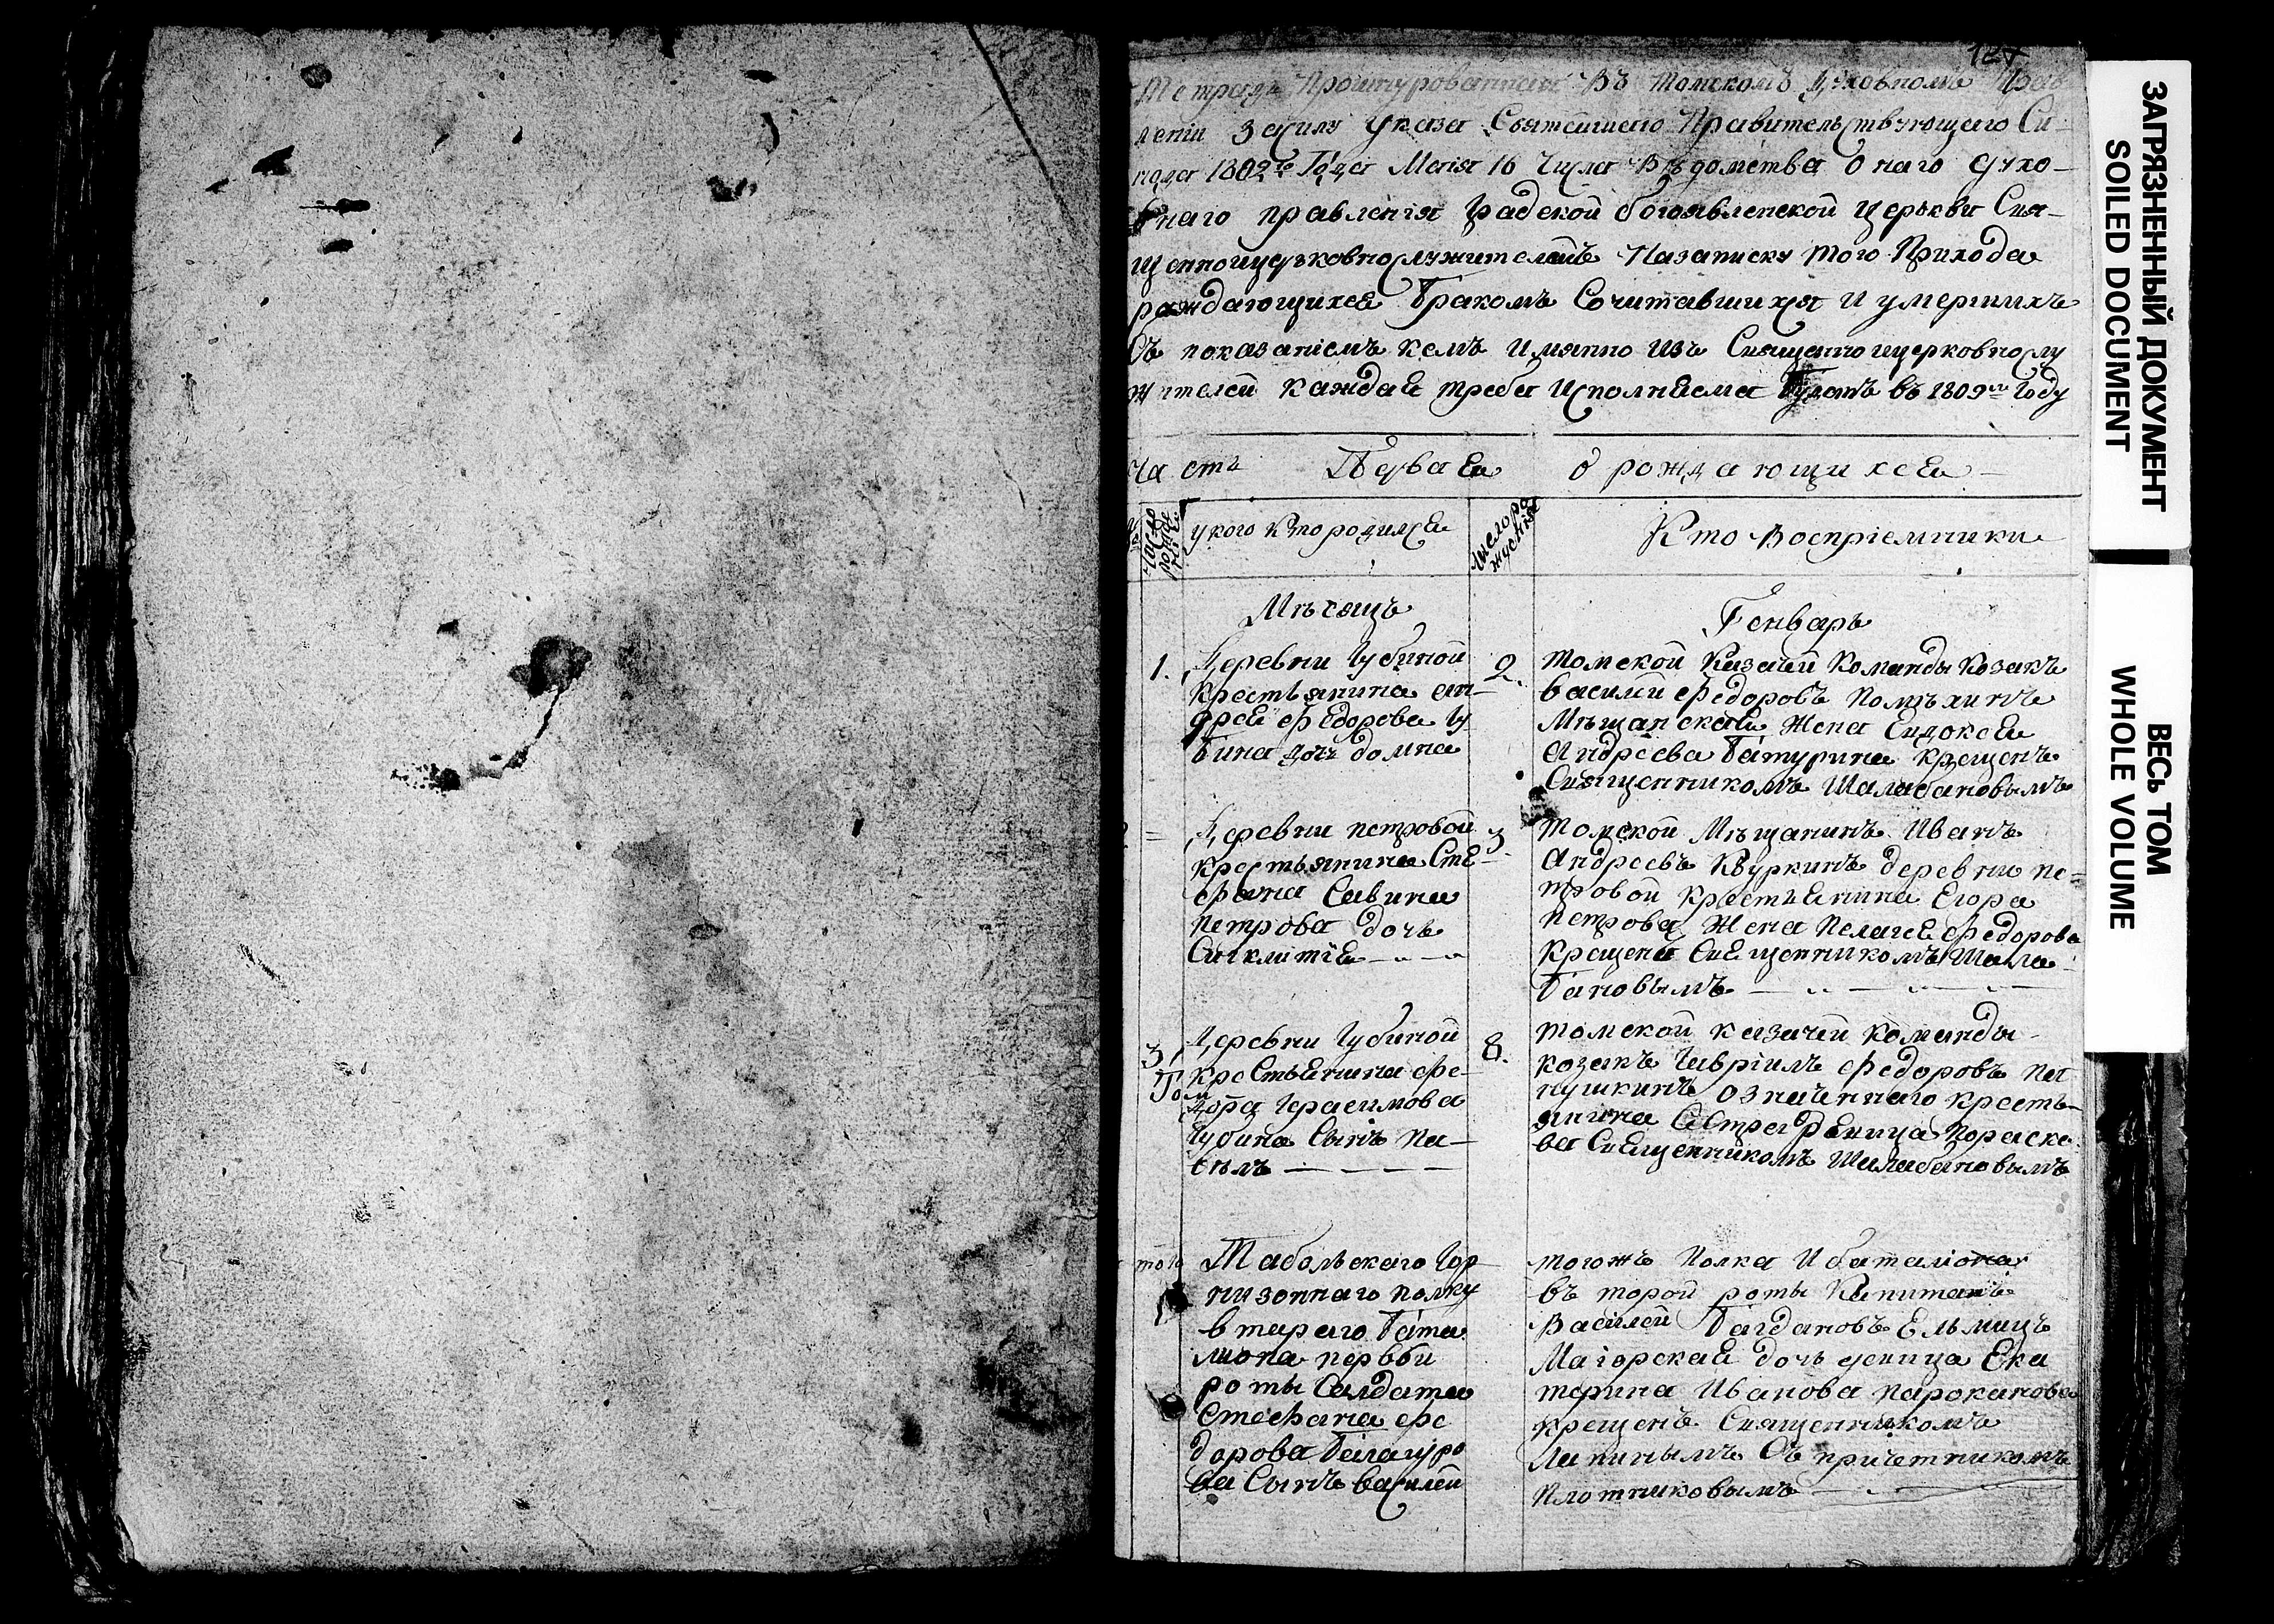 127
Тетрадь Прошнурованная Въ томскомъ Духовномъ Прав
лении Засилу указа Святейшаго Правительствующаго Си-
нода 1802го Года Маія 16 Числа Вѣдомства Онаго духо-
внаго правленія Градской богоявленской церькви Свя-
щенноицерьковнослужителямъ Назаписку того Прихода
рождающихся Бракомъ Сочитавшихся И умершихъ
Съ показаніемъ кемъ Имянно Изъ Священноицерковнослу
жителей каждая треба Исполняема Будетъ въ 1809м Году
часть Первая О рождающихся
число рожде
у кого кто родился
число ро
Кто Воспріемники
Мѣсяцъ Генварь
1. Деревни Губиной
крестьянина ан-
дрея федорова Гу
бина дочь домна
2. томской Казачей Команды Козакъ
василий федоровъ
Мѣщанская Жена Евдокея
Андреева Батурина крещенъ
Священникомъ Шалабановымъ
Деревни петровой
крестьянина Сте-
фана Савина
петрова дочь
Сигклитіе
3. томской Мѣщанинъ Иванъ
Андреевъ Куркинъ деревни пе-
тровой крестьянина Егора
петрова Жена Пелагея федорова
крещена Священникомъ Шала-
бановымъ
3, Деревни Губиной
крестьянина фе-
дора Герасимова
Губина Сынъ Па-
велъ
8. томской казачей команды
козакъ Гавріилъ федоровъ па
пушкинъ означеннаго кресть-
янина Сестра девица Пораске-
ва Священникомъ Шалабановымъ
Табольскаго Гор
низоннаго полку
втараго бата
лиона первой
роты Салдата
Стефана фе
дорова Балагуро
ва Сынъ василей
тогожъ Полка И баталиона
въторой роты Капитанъ
Василей Багдановъ Ельмицъ
Маіорская дочь девица Ека
терина Иванова
крещенъ Священникомъ
Лапинымъ Съ причетникомъ
Плотниковымъ
ЗАГРЯЗНЕННЫЙ ДОКУМЕНТ
SOILED DOCUMENT
ВЕСЬ ТОМ
WHOLE VOLUME